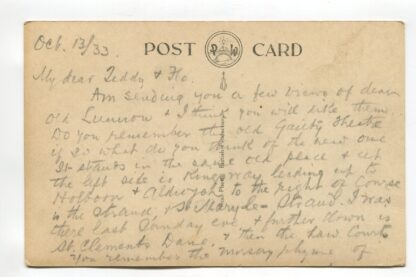 Oct. 13/33.
POST CARD
My dear Teddy & Flo.
Am sending you a few views of dear
old Lunnon & I think you will like them
Do you remember the old Gaiety Theatre
if so what do you think of the new one
It stands in the same old place & at
the left side is Kingsway leading up to
Holborn & Aldwych to the right of course
is the Strand, & St Mary-le-Strand. I was
there last Sunday eve. & further down is
St. Clements Dane. & then the Law Courts
You remember the nursery rhyme of